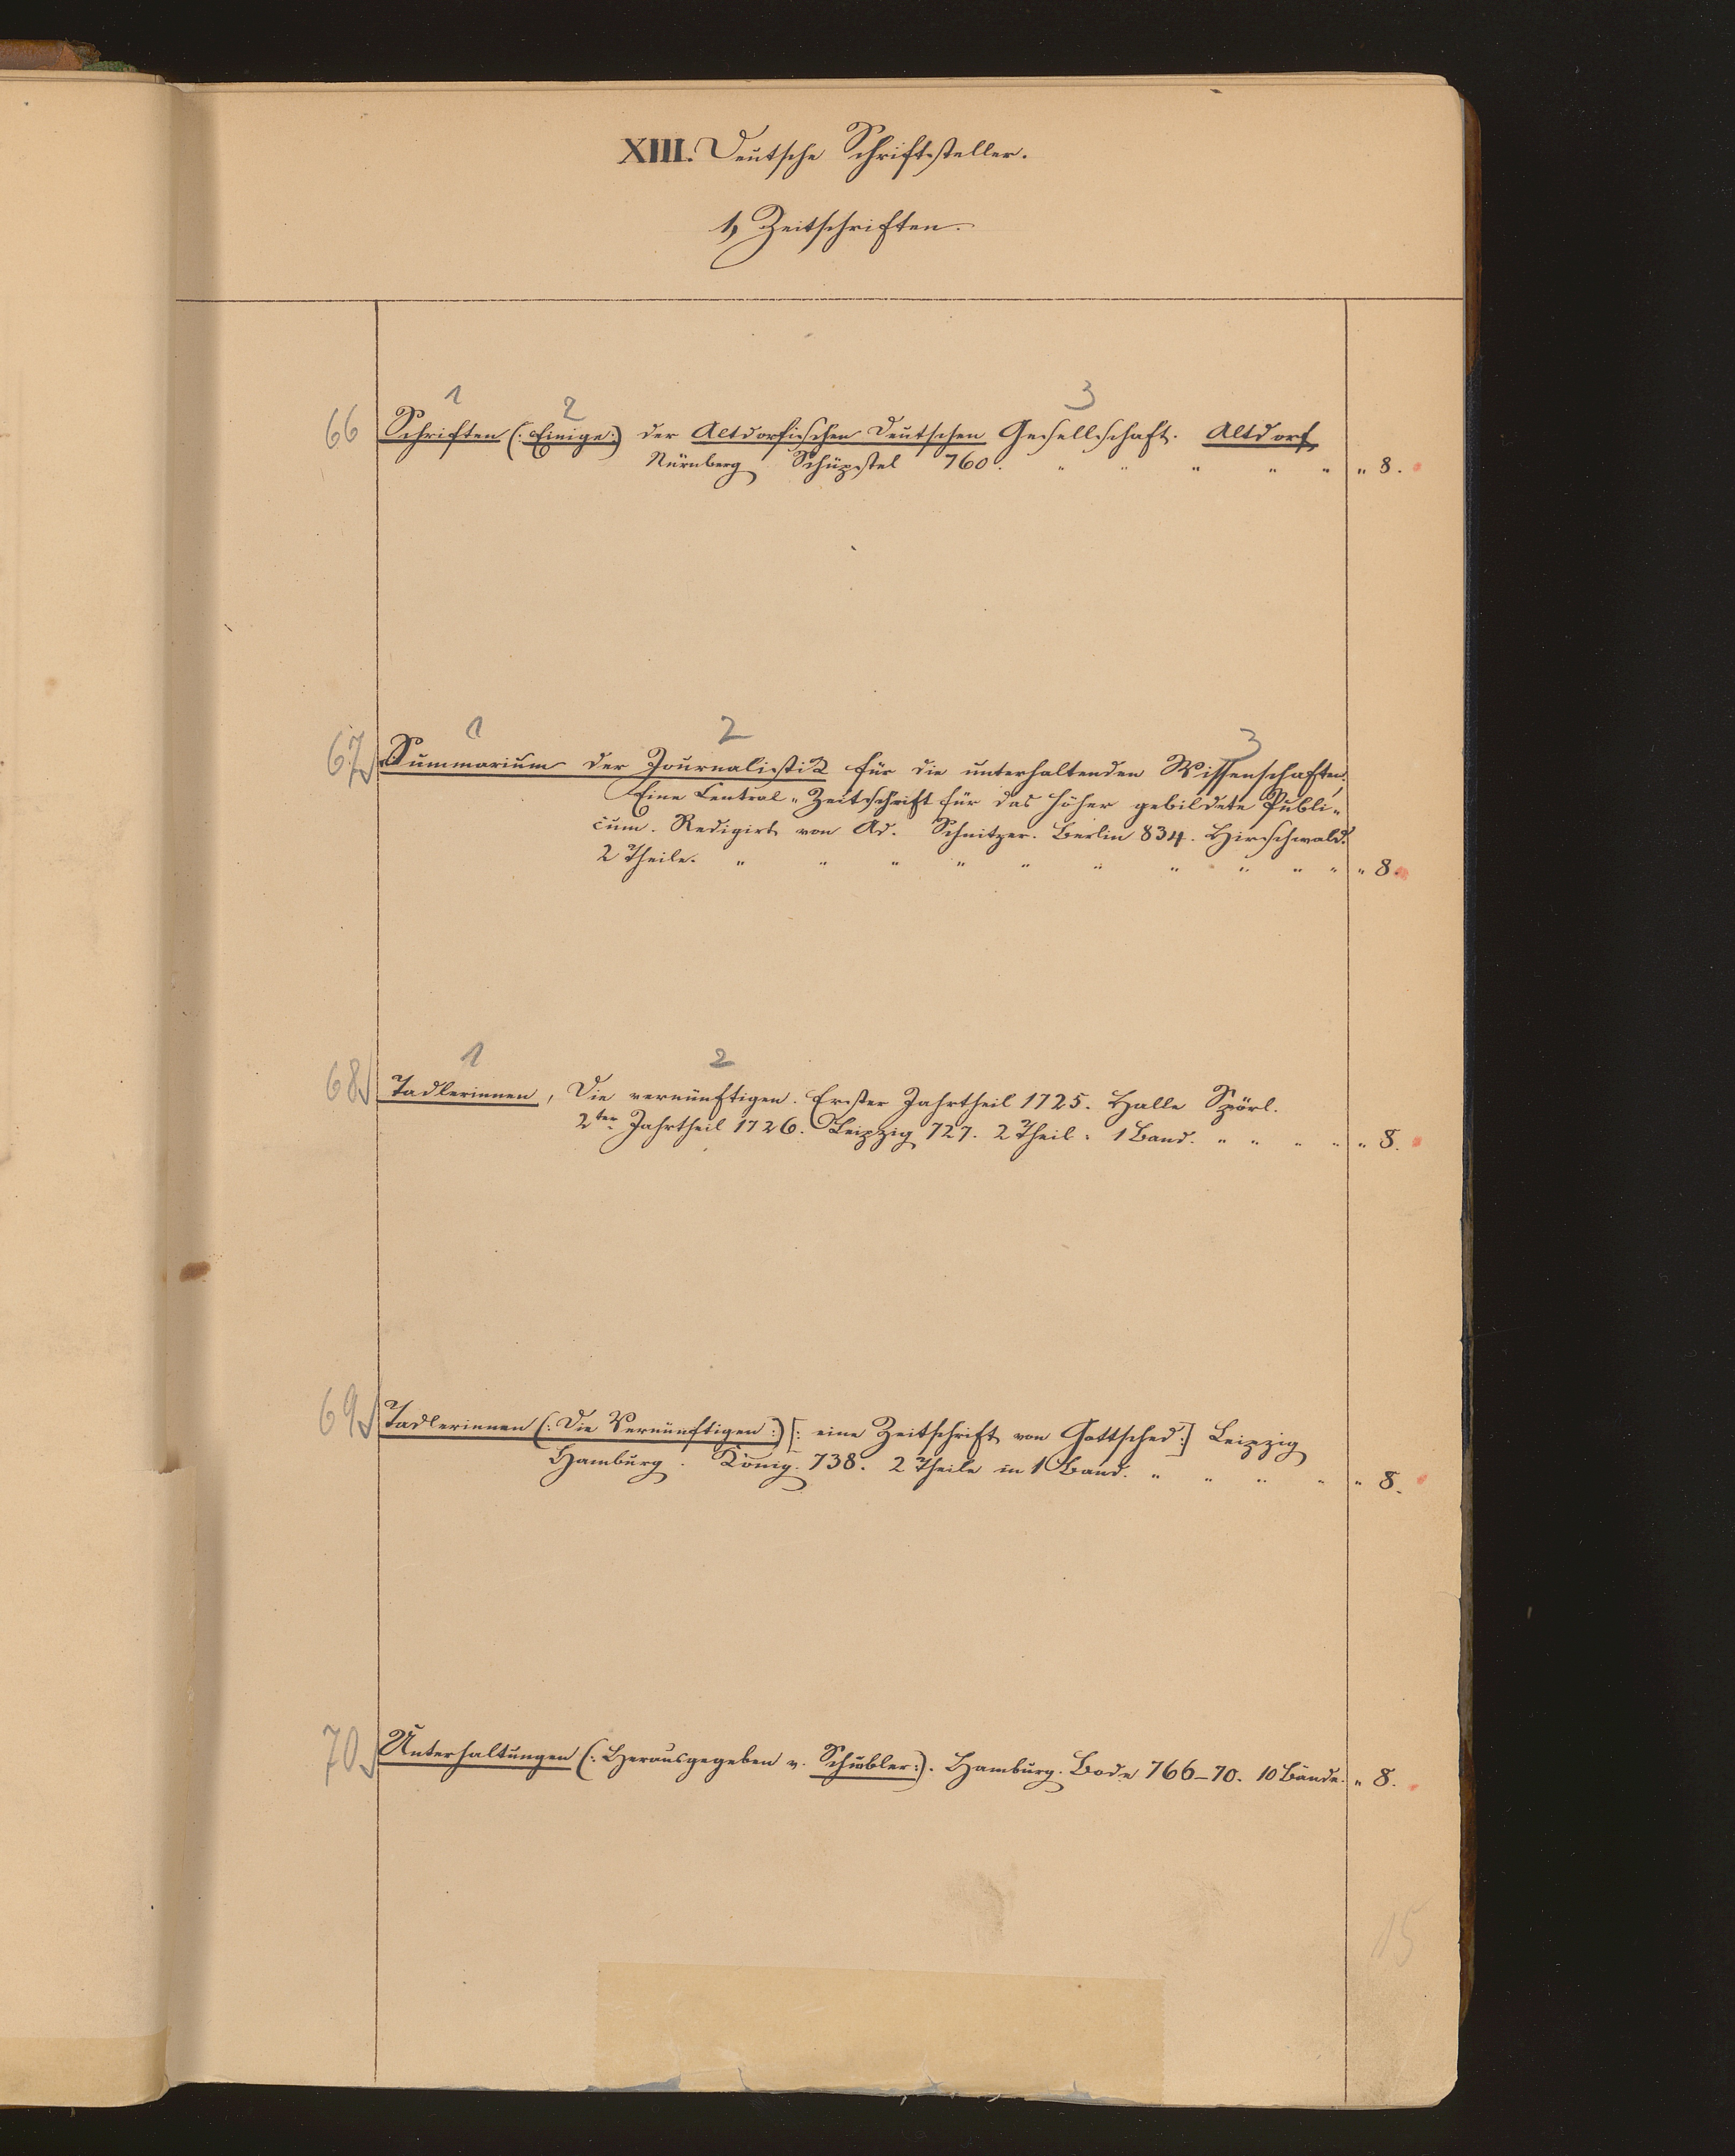 XIII. Deutsche Schriftsteller.
1, Zeitschriften.
1 2 3
66 Schriften (: Einige :) der Altdorfischen Deutschen Gesellschaft. Altdorf
Nürnberg Schüpstel 760. " " " " " " 8.
1 2 3
67 Summarium der Journalistik für die unterhaltenden Wissenschaften.
Eine Central-Zeitschrift für das höher gebildete Publi-
cum. Redigirt von Ad. Schnitzer. Berlin 834. Hirschwald.
2 Theile. " " " " " " " " " " " 8.
1 2
68 Tadlerinnen, Die vernünftigen. Erster Jahrtheil 1725. Halle Spörl.
2ter Jahrtheil 1726. Leipzig 727. 2 Theil: 1 Band. " " " " " 8.
69 Tadlerinnen (: Die Vernünftigen :) [: eine Zeitschrift von Gottsched :] Leipzig
Hamburg. König. 738. 2 Theile in 1 Band. " " " " " 8.
70 Unterhaltungen (: Herausgegeben v. Schiebler :). Hamburg. Bode 766-70. 10 Bände. " 8.
15